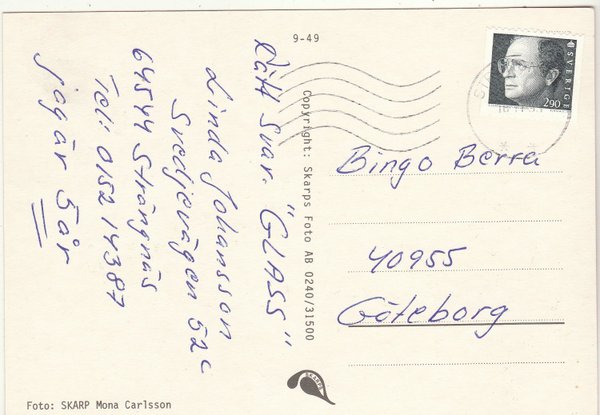 9-49
SVERIGE
2.90
Rätt Svar. "GLASS"
Linda Johansson
Svedjevägen 52c
64544 Strängnäs
Tel: 0152 14387
jag är 5 år
Copyright: Skarps Foto AB 0240/31500
Bingo Berra
40955
Göteborg
SKARPS
Foto: SKARP Mona Carlsson